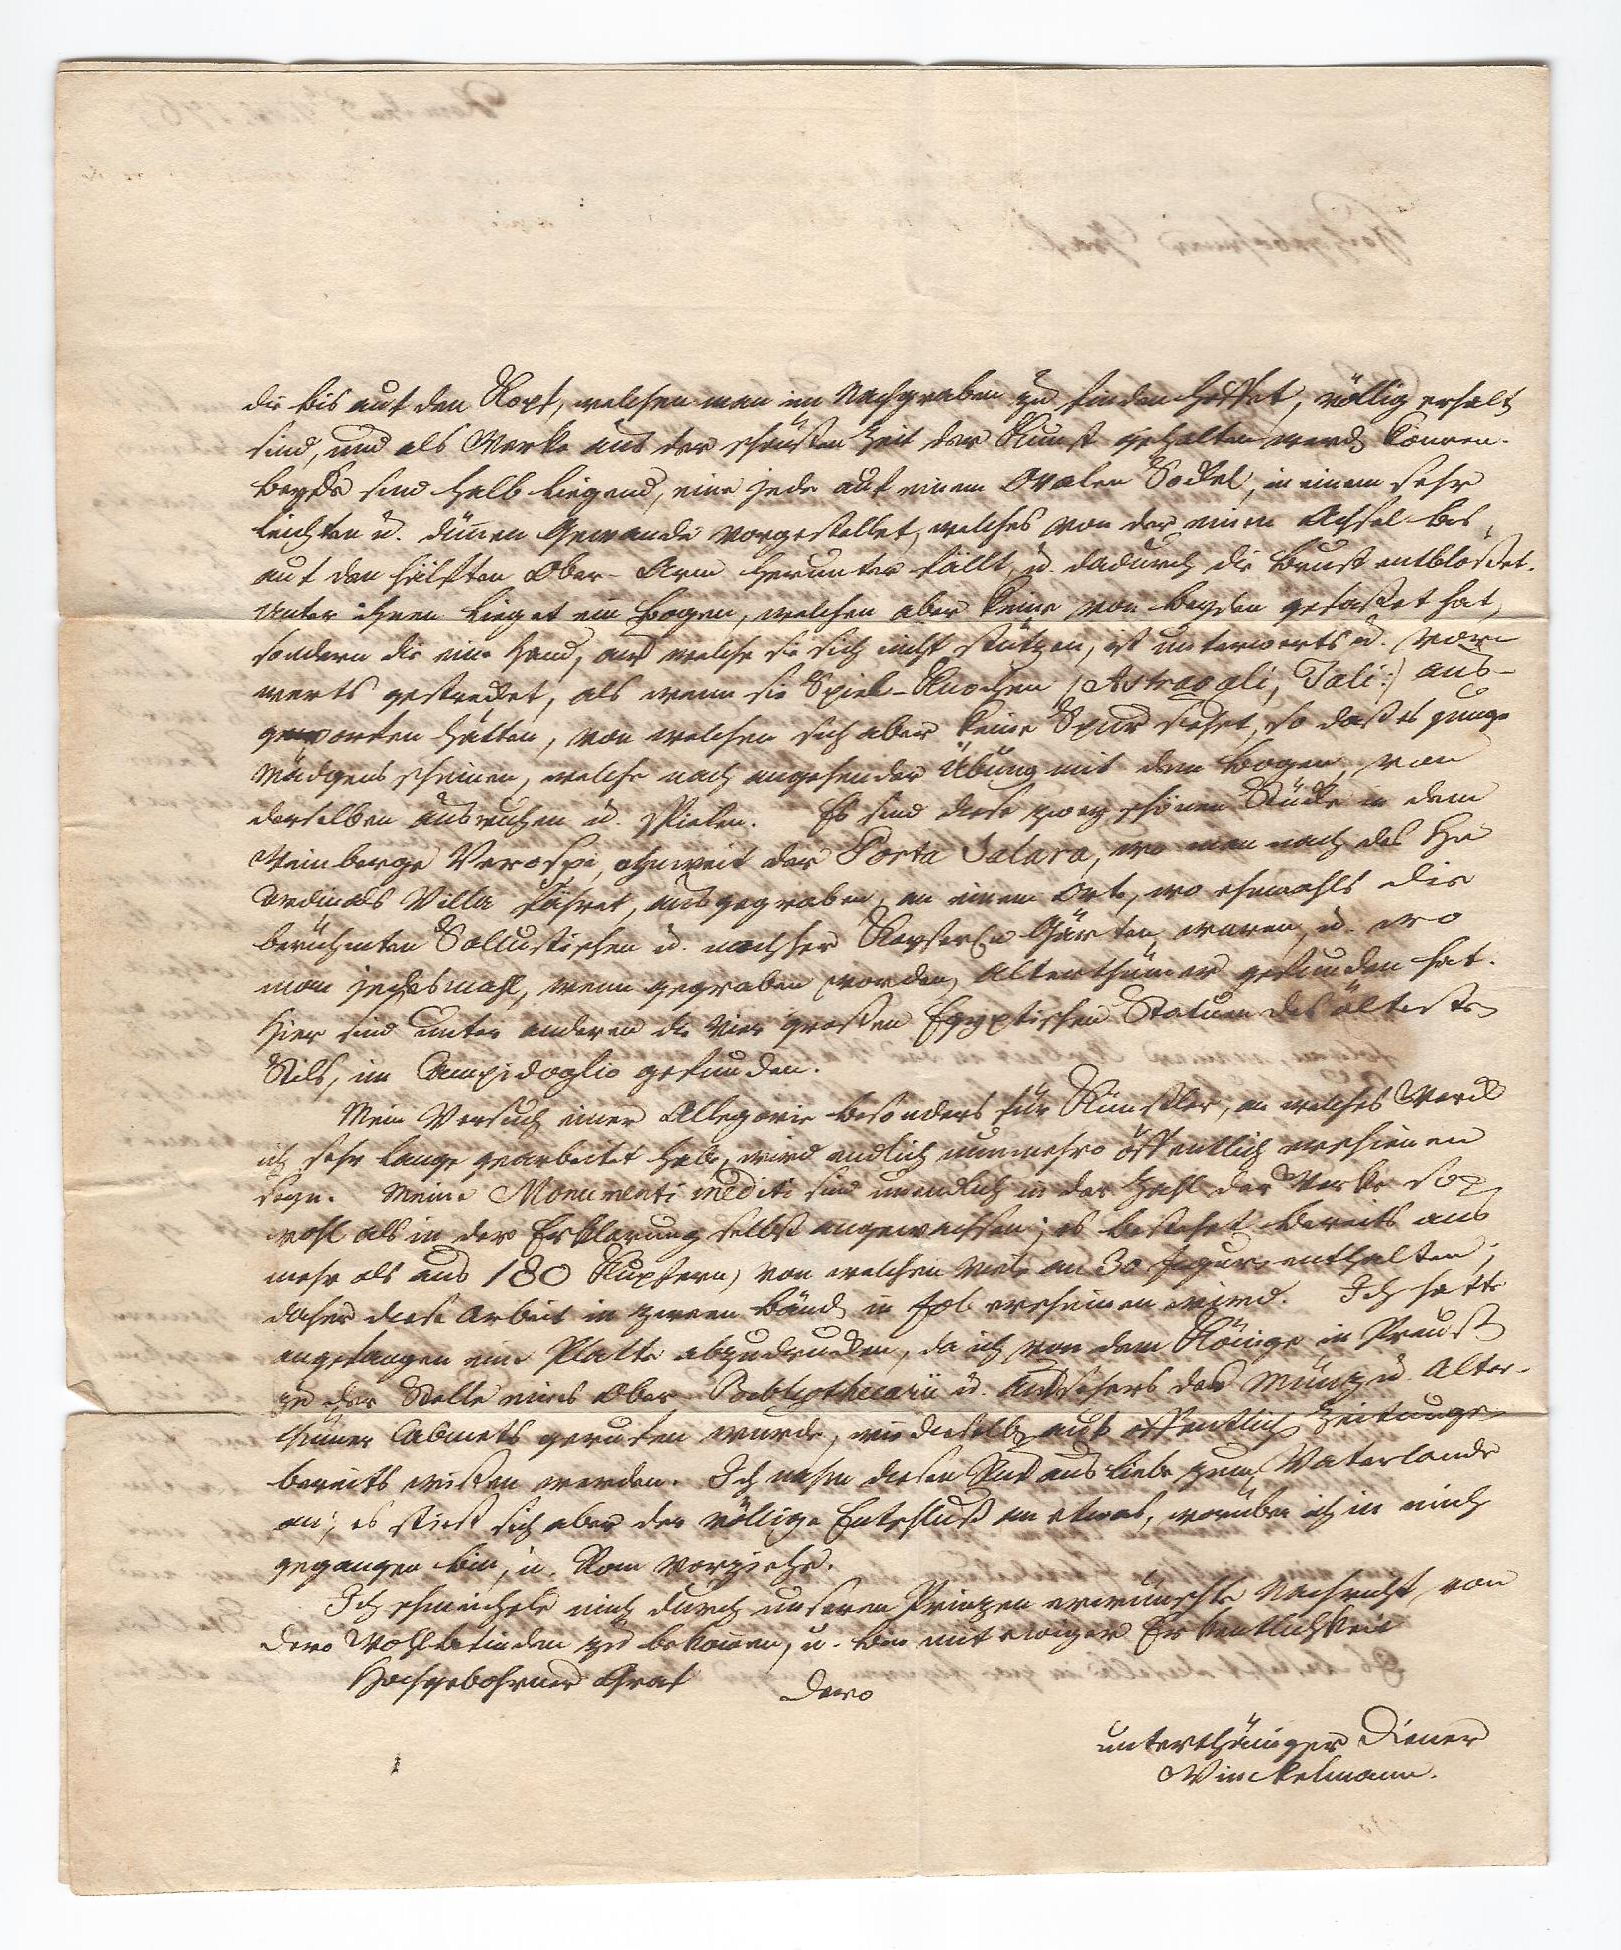 die bis auf den Kopf, welchen man im Nachgraben zu finden hoffet, völlig erhalten
sind, und als Werke aus der schönsten Zeit der Kunst gehalten werden können.
Beyde sind halb liegend, eine jede auf einem Ovalen Sockel, in einem sehr
leichten u. dünnen Gewande vorgestellet, welches von der einen Achsel bis
auf den hälften Ober-Arm herunter fällt, u. dadurch die Brust entblößet.
Unter ihnen lieget ein Bogen, welchen aber keine von beyden gefaßet hat,
sondern die eine Hand, auf welche sie sich nicht stützen, ist unterwerts u. vor-
werts gestrecket, als wenn sie Spiel-Knochen (Astragali, Tali:) aus-
geworfen hätten, von welchen sich aber keine Spur siehet, so daß es junge
Mädgens scheinen, welche nach angehender Übung mit dem Bogen, von
derselben ausruhen u. spielen. Es sind diese zwey schönen Stücke in dem
Weinberge Verospi, ohnweit der Porta Salara, wo man nach des Hn
Cardinals Villa fähret, ausgegraben, an einem Orte, wo ehemahls die
berühmten Sallustischen u. nachher Kayserln Gärten waren, u. wo
man jedesmahl, wenn gegraben worden, Alterthümer gefunden hat.
Hier sind unter anderen die vier großen Egyptischen Statuen des ältesten
Stils, im Campidoglio gefunden.
Mein Versuch einer Allegorie besonders für Künstler, an welches Werck
ich sehr lange gearbeitet habe, wird endlich nunmehro öffentlich erschienen
seyn. Meine Monumenti inediti sind unendlich in der Zahl der Werke so-
wohl als in der Erklärung selbst angewachsen; es bestehet bereits aus
mehr als aus 180 Kupfern, von welchen viele an 30 Figuren enthalten,
daher diese Arbeit in zween Bänd. in fol. erscheinen wird. Ich hatte
angefangen eine Platte abzudrucken, da ich von dem Könige in Preuß.
zu der Stelle eines Ober-Bibliothecarii u. Aufsehers des Münz u. Alter-
thümer Cabinets gerufen wurde, wie dieselben aus öffentlich. Zeitungen
bereits wißen werden. Ich nahm diesen Ruf aus Liebe zum Vaterlande
an; es stieß sich aber der völlige Entschluß an etwas, worüber ich in mich
gegangen bin, u. Rom vorziehe.
Ich schmeichele mich durch unseren Prinzen erwünschte Nachricht von
Dero Wohlbefinden zu bekommen, u. bin mit ewiger Erkenntlichkeit
Hochgebohrner Graf
Dero
unterthäniger Diener
Winckelmann.